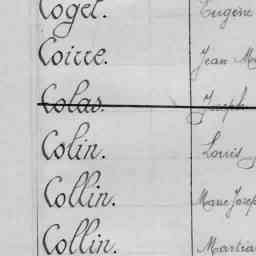 Coget. Eugène
Coirre. Jean
Colas. Joseph
Colin. Louis
Collin. Marie Josep
Collin. Martia